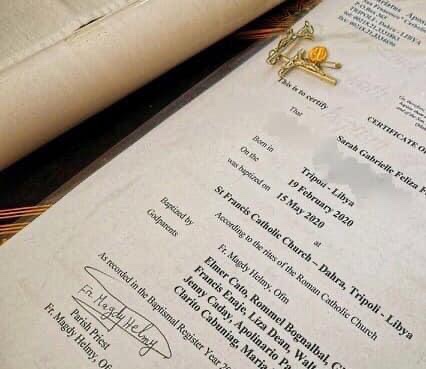 Apos
San Francesco" Catholic
P.O Box 365
TRIPOLI: Dahra - LIBYA
This is to certify
CERTIFICATE OF
That
Sarah Gabrielle Feliza F
Born in
Tripou - Libya
On the
19 February 2020
was baptized on
15 May 2020
at
St Francis Catholic Church - Dahra, Tripoli - Libya
According to the rites of the Roman Catholic Church
Baptized by
Fr. Magdy Helmy, Ofm
Godparents
Elmer Cato, Rommel Bognalbal,
Francis Enaje, Liza Dean, Walt
Jenny Caday, Apolinario Pa
Clarito Cabuntag, Maria
As recorded in the Baptismal Register Year 20
Fr. Magdy Helmy
Parish Priest
Fr. Magdy Helmy, Of